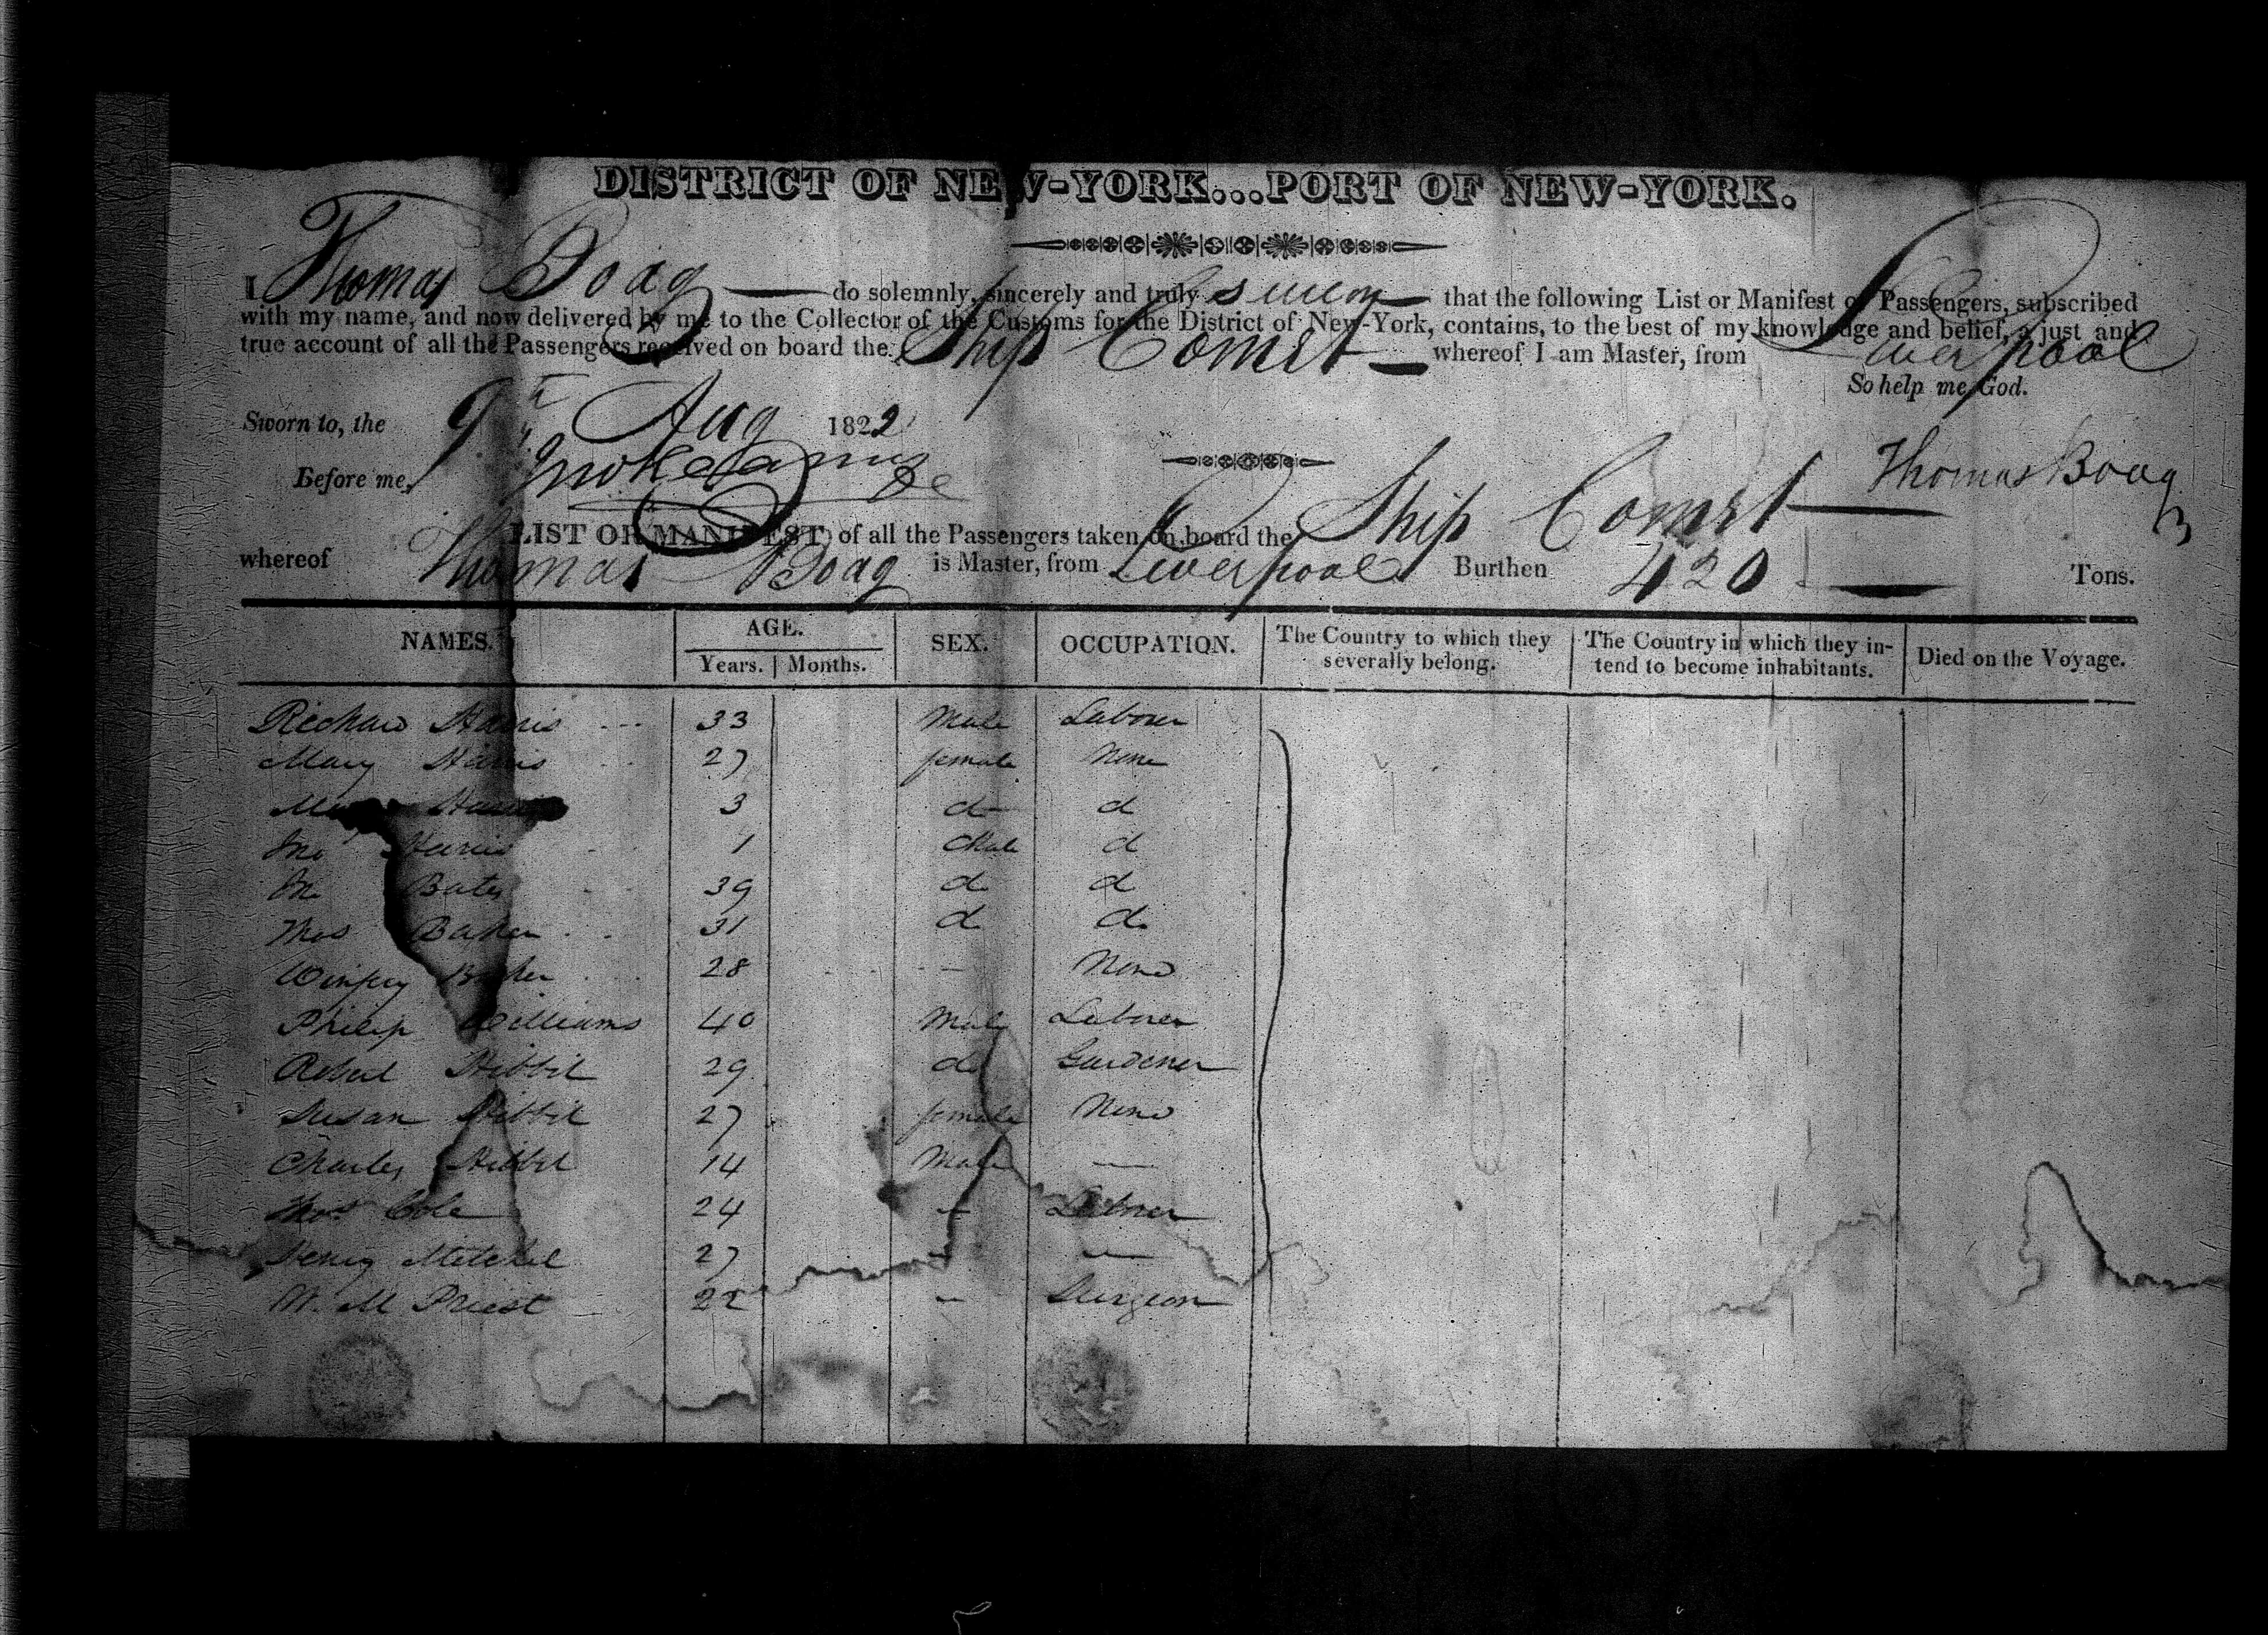 DISTRICT OF NEW-YORK...PORT OF NEW-YORK.
I Thomas Boag do solemnly, sincerely and truly swear that the following List or Manifest of Passengers, subscribed
with my name, and now delivered by me to the Collector of the Customs for the District of New-York, contains, to the best of my knowledge and belief, a just and
true account of all the Passengers received on board the Ship Comet whereof I am Master, from Liverpool
So help me God.
Sworn to, the 9th Aug 1822
Before me,
Thomas Boag
LIST OR MANIFEST of all the Passengers taken on board the Ship Comet
whereof Thomas Boag is Master, from Liverpool Burthen 420 Tons.
NAMES. AGE. Years. Months. SEX. OCCUPATION. The Country to which they severally belong. The Country in which they intend to become inhabitants. Died on the Voyage.
Richard Harris 33 Male Laborer
Mary Harris 27 female None
Harris 3 d d
Jno Harris 1 Male d
Jno Bates 39 d d
Thos Baker 31 d do
Baker 28 — None
Philip Williams 40 Male Laborer
Robert Hibbil 29 do Gardener
Susan Hibbil 27 female None
Charles Hibbil 14 Male —
Thos Cole 24 — Laborer
Henry Mitchel 27 — —
W. M Priest 22 — Surgeon